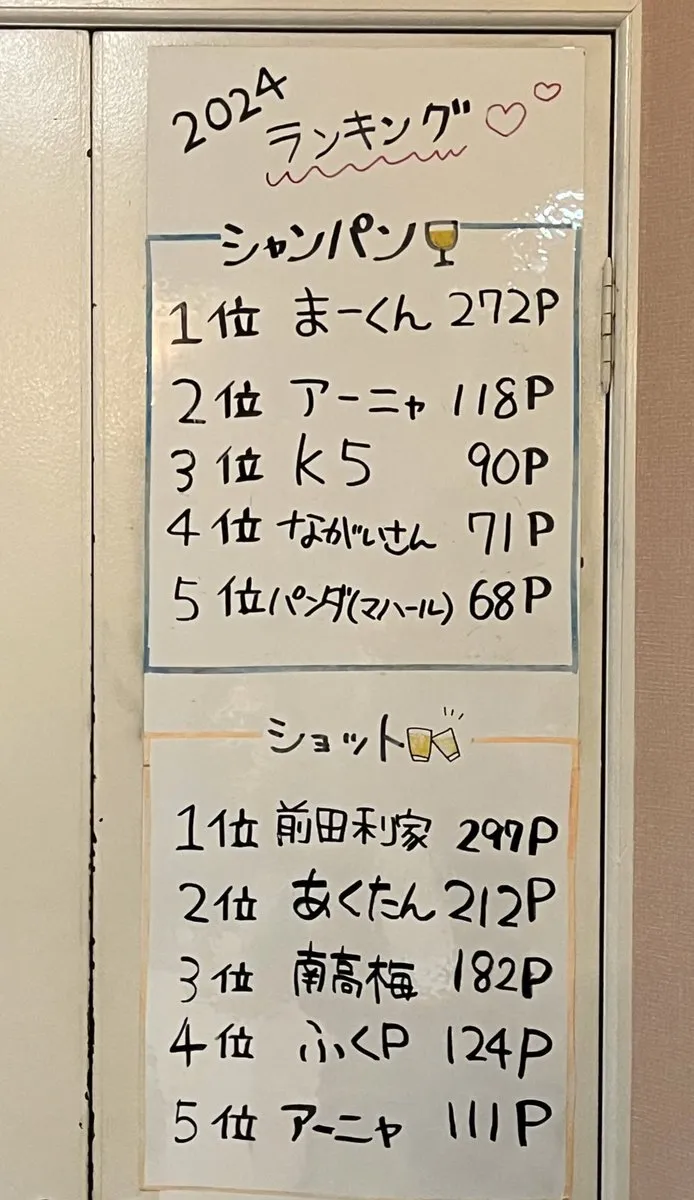 2024
ランキング
シャンパン
1位 まーくん 272P
2位 アーニャ 118P
3位 K5 90P
4位 ながいさん 71P
5位 パンダ(マハール) 68P
ショット
1位 前田利家 297P
2位 あくたん 212P
3位 南高梅 182P
4位 ふくP 124P
5位 アーニャ 111P